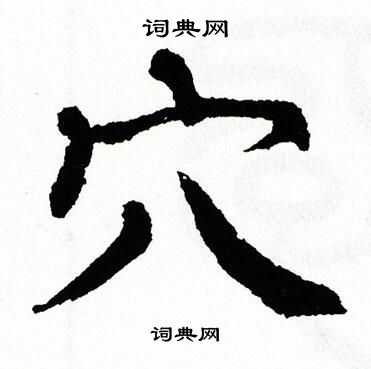 词典网
穴
词典网